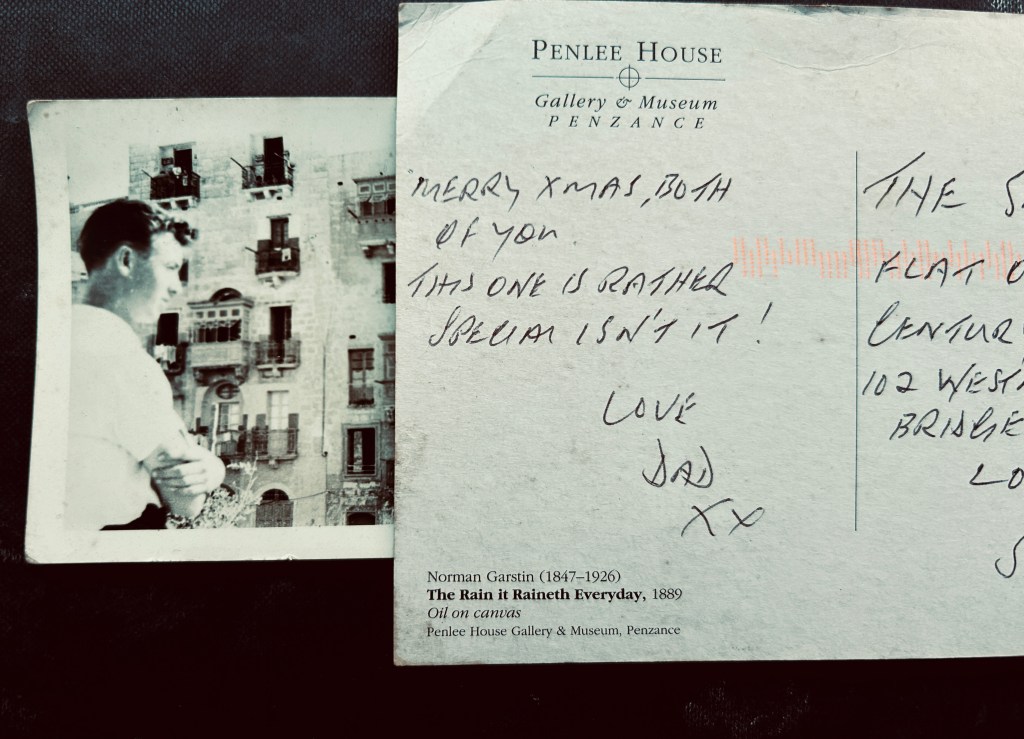 PENLEE HOUSE
Gallery & Museum
PENZANCE
MERRY XMAS, BOTH
OF YOU.
THIS ONE IS RATHER
SPECIAL ISN'T IT!
LOVE
DAD
XX
THE S
FLAT
CENTUR
102 WEST
BRIDGE
LO
S
Norman Garstin (1847–1926)
The Rain it Raineth Everyday, 1889
Oil on canvas
Penlee House Gallery & Museum, Penzance